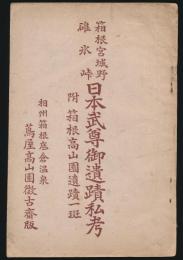 箱根宮城野
碓氷峠
日本武尊御遺蹟私考
附箱根高山園遺蹟一班
相州箱根底倉温泉
蔦屋高山園徴古齋版